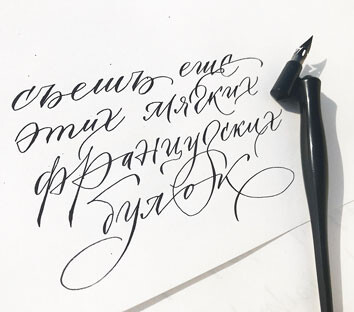 съешь еще
этих мягких
французских
булок